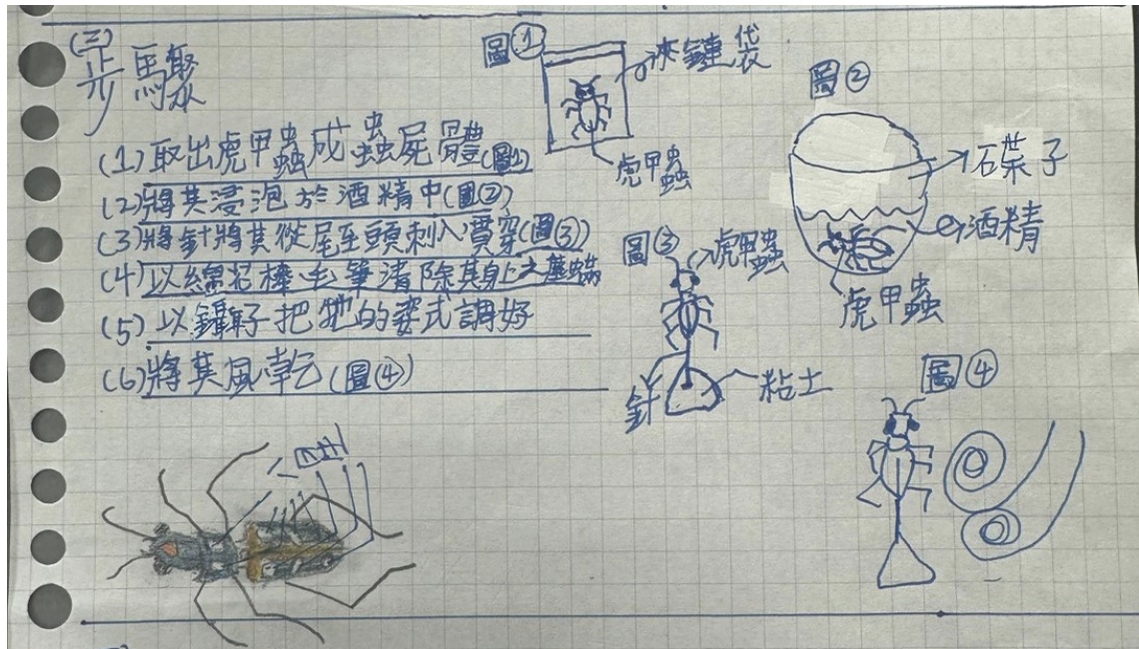 (三)
步驟
(1)取出虎甲蟲成蟲屍體(圖1)
(2)將其浸泡於酒精中(圖②)
(3)將針將其從尾至頭刺入貫穿(圖③)
(4)以綿花棒毛筆清除其身上之塵蟎
(5)以鑷子把牠的姿式調好
(6)將其風乾(圖④)
圖①
夾鏈袋
虎甲蟲
圖②
石葉子
酒精
虎甲蟲
圖③
虎甲蟲
針
粘土
圖④